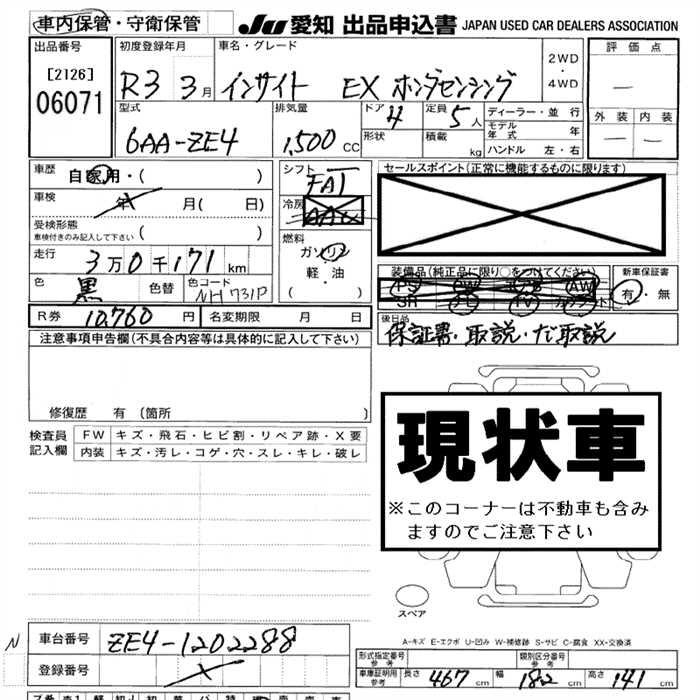 車内保管・守衛保管 JU 愛知 出品申込書 JAPAN USED CAR DEALERS ASSOCIATION
出品番号 初度登録年月 車名・グレード 2WD・4WD 評価点
[2126] R3 3月 インサイト EX ホンダセンシング —
06071 型式 排気量 ドア 4 定員 5人 ディーラー・並行 外装 内装
6AA-ZE4 1,500 CC 形状 積載 kg モデル年式 年 — —
ハンドル 左・右
車歴 自家用・( ) シフト FAT セールスポイント(正常に機能するものに限ります)
車検 年 月( 日) 冷房 AAC
受検形態 車検付きのみ記入して下さい ( ) 燃料
走行 3万0千171km ガソリン
色 黒 色替 色コード NH731P 軽・油 ( ・ )
装備品(純正品に限り○をつけてください) 新車保証書
PS PW AW 有・無
SR TV
R券 10,760円 名変期限 月 日 後日品
保証書・取説・ナビ取説
注意事項申告欄(不具合内容等は具体的に記入して下さい)
修復歴 有(箇所 )
検査員記入欄 FW キズ・飛石・ヒビ割・リペア跡・X要
内装 キズ・汚レ・コゲ・穴・スレ・キレ・破レ
現状車
※このコーナーは不動車も含み
ますのでご注意下さい
スペア
A-キズ E-エクボ U-凹み W-補修跡 S-サビ C-腐食 XX-交換済
N 車台番号 ZE4-1202288
形式指定番号 参考 類別区分番号 参考
登録番号 車庫証明用 参考 長さ 467cm 幅 182cm 高さ 141cm